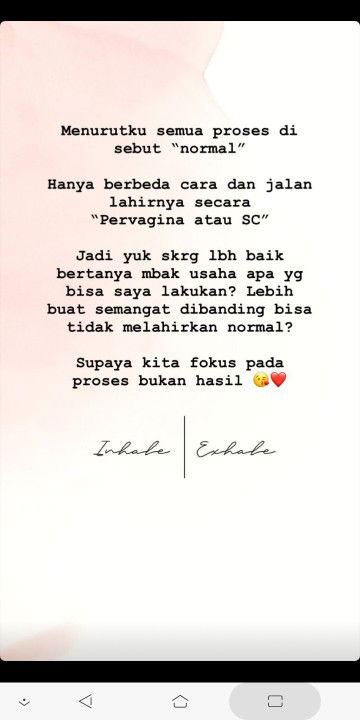 Menurutku semua proses di
sebut “normal”
Hanya berbeda cara dan jalan
lahirnya secara
“Pervagina atau SC”
Jadi yuk skrg lbh baik
bertanya mbak usaha apa yg
bisa saya lakukan? Lebih
buat semangat dibanding bisa
tidak melahirkan normal?
Supaya kita fokus pada
proses bukan hasil 😘❤️
Inhale | Exhale